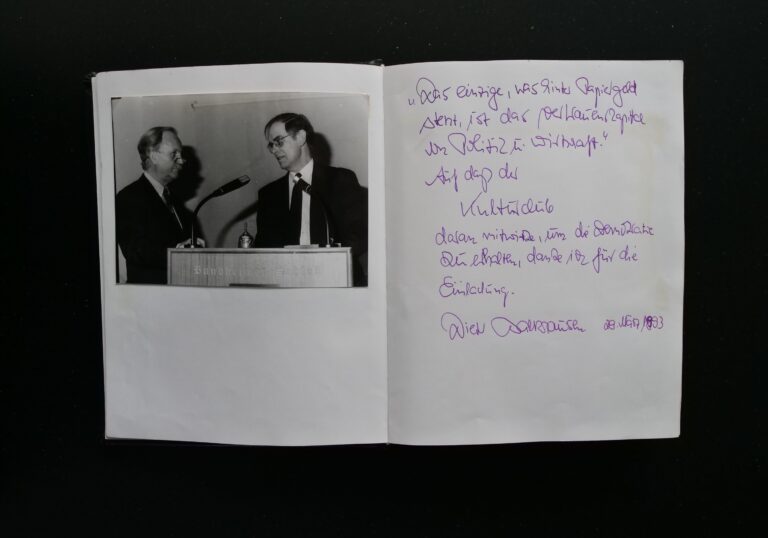 „Das einzige, was hinter Papiergeld
steht, ist das Vertrauenskapital
von Politik u. Wirtschaft."
Auf daß der
Kulturclub
daran mitwirke, um die Demokratie
zu erhalten, danke ich für die
Einladung.
März 1993